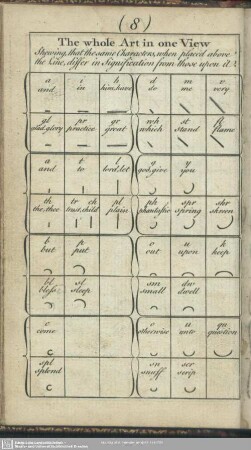 (8)
The whole Art in one View
Shewing, that the same Characters, when placed above
the Line, differ in Signification from those upon it.
a i h d m v
and in him, have do me very
gl pr gr wh st fl
glad, glory practice great which stand flame
a t l g y
and to lord, let god, give you
th tr ch pl ph spr shr
the, thee trust, child plain phantastic spring shrow
b p o u k
but put out upon keep
bl sl sm dw
bless sleep small dwell
c o u qu
come otherwise unto question
spl sn scr
splend snuff scrip